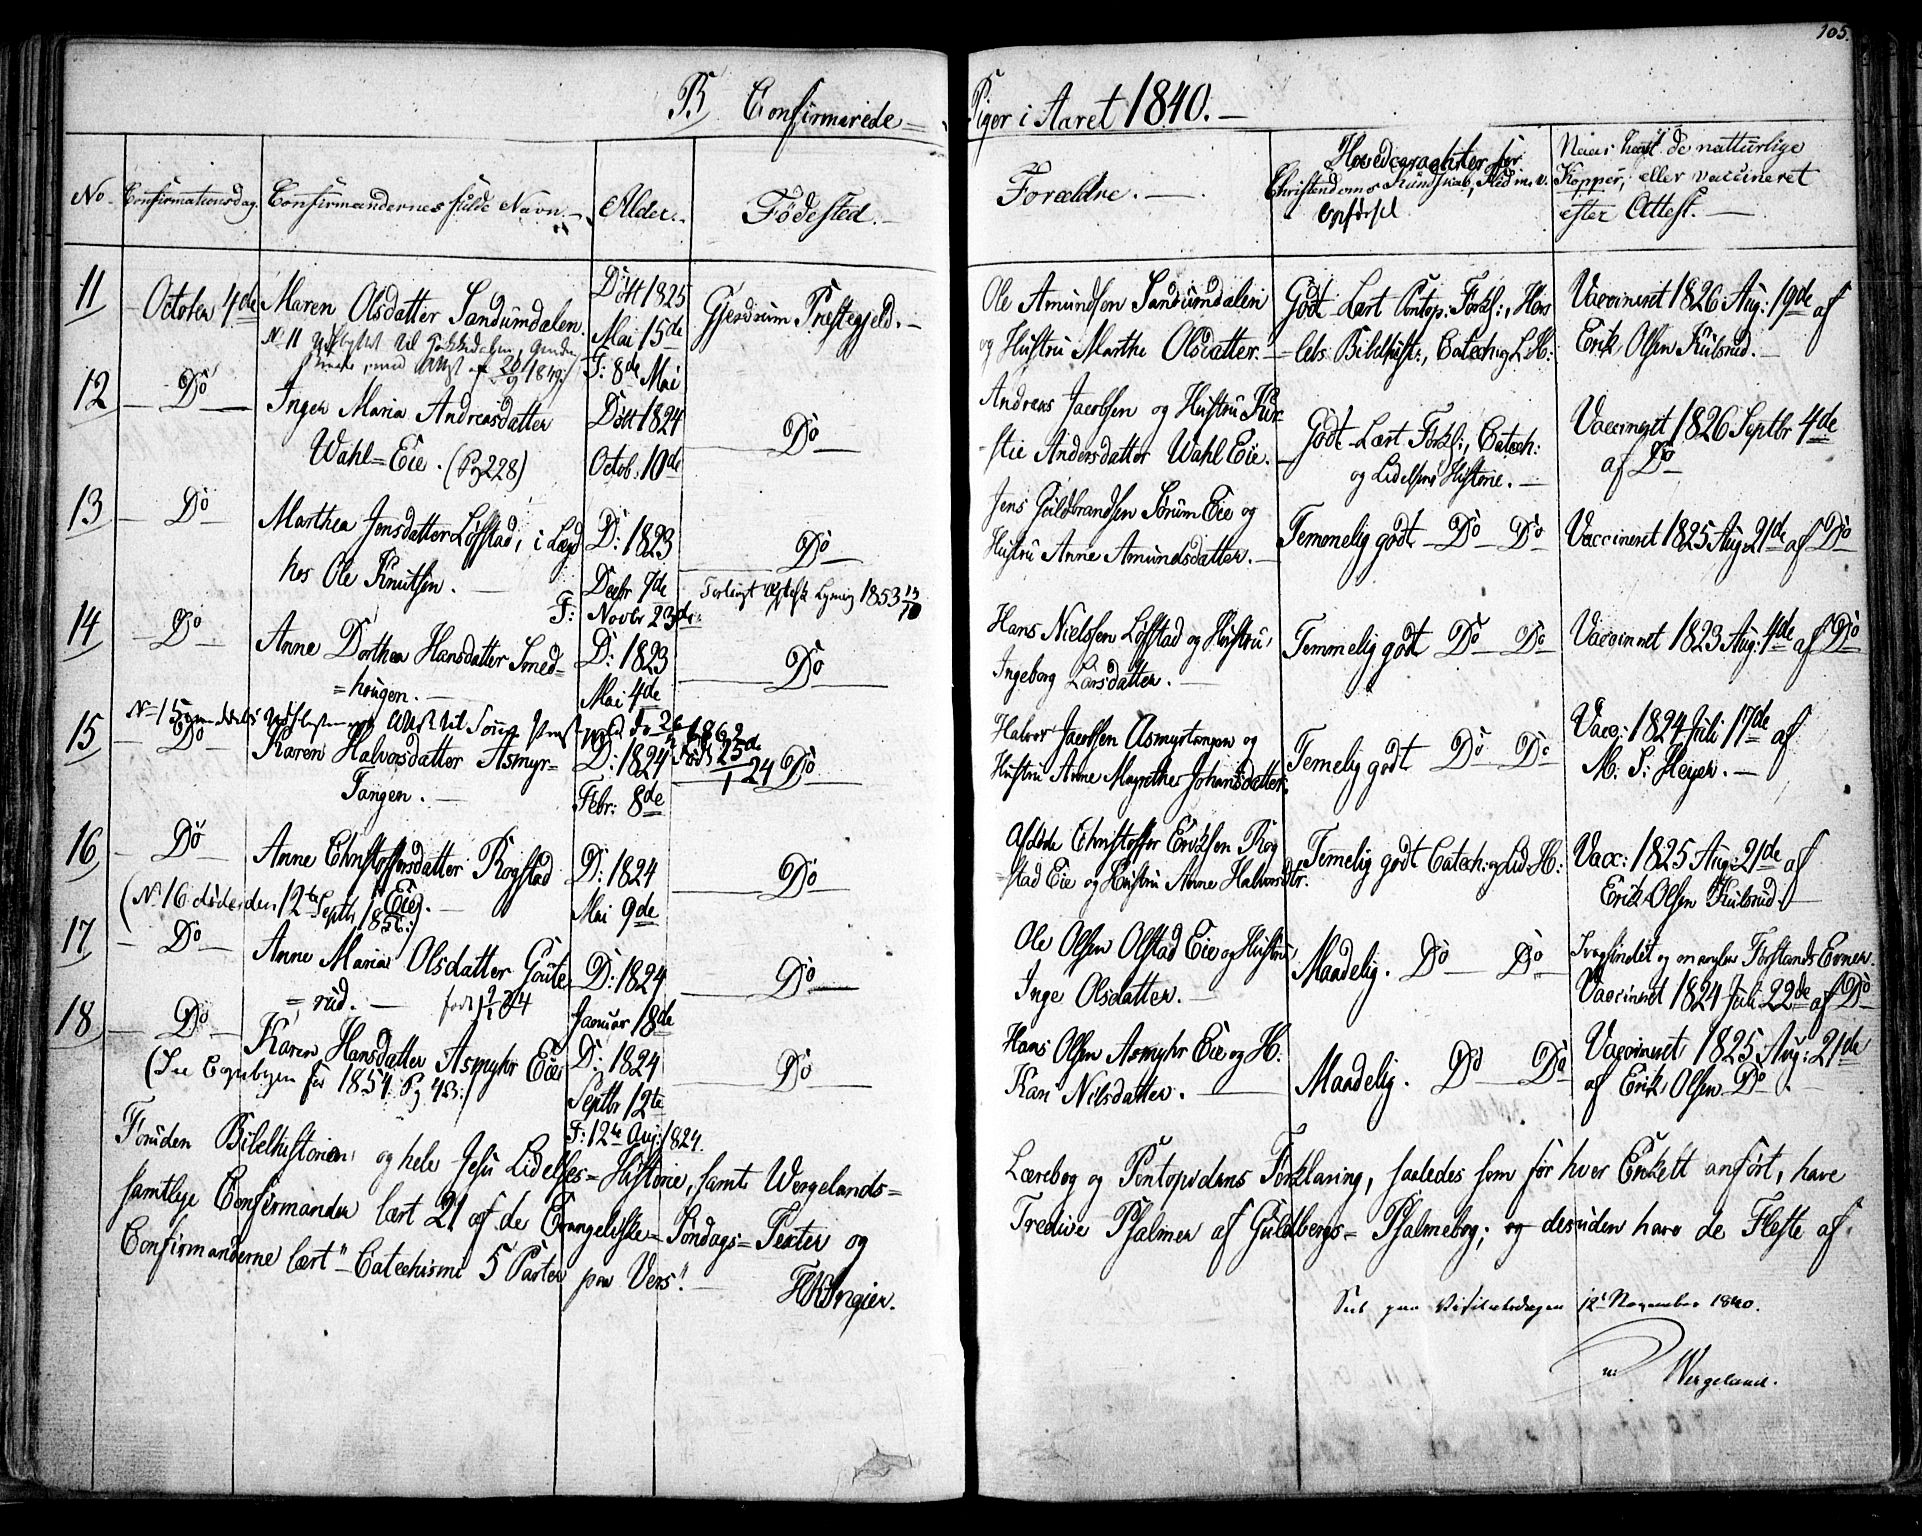 105.
B, Confirmerede = Piger i Aaret 1840. —
No. Confirmationsdag. Confirmandernes fulde Navn. — Alder. Fødested. —
Forældre. —
Hovedcaracteer for
Christendoms Kundskab, Flid m. v.
Opførsel
Naar havt de natturlige
Kopper, eller vaccineret
efter Attest. —
11 October 4de Maren Olsdatter Sandumdalen
Døbt 1825
Mai 15de
F: 8de Mai
Gjerdrum Præstegjeld. —
Ole Amundsen Sandumdalen
og Hustru Marthe Olsdatter. —
Godt Lært Pontop. Forkl:, Hers
lebs Bibelhist:, Catech: og L. H:
Vaccineret 1826 Aug: 19de af
Erik Olsen Kulsrud. —
No 11 med Attest af 20/9 1849
12 Do Inger Maria Andreasdatter
Wahl=Eie. (Pag 228)
Døbt 1824
Octob. 10de
Do
Andreas Jacobsen og Hustru Kir
stie Andersdatter Wahl Eie. —
Godt Lært Forkl:, Catech:
og Lidelsens Historie. —
Vaccineret 1826 Septbr 4de
af Do
13 Do Marthea Jensdatter Løfstad, i Lægd
hos Ole Knutsen. —
D: 1823
Decbr 7de
F: Novbr 23de
Do
1853 13/10
Jens Guldbrandsen Sørum Eie og
Hustru Anne Amundsdatter. —
Temmelig godt Do Do
Vaccineret 1825 Aug 21de af Do
14 Do Anne Dorthea Hansdatter Smed=
=hougen. —
D: 1823
Mai 4de
Do
Hans Nielsen Løfstad og Hustru
Ingeborg Larsdatter. —
Temmelig godt Do Do
Vaccineret 1823 Aug: 4de af Do
No 15 Attest til
15 Do Karen Halvorsdatter Asmyr=
Tangen. —
D: 1824
Febr: 8de
Født 25/1 24 Do
Halvor Jacobsen Asmyrtangen og
Hustru Anne Magrethe Johansdatter.
Temelig godt Do Do
Vacc: 1824 Juli 17de af
M. S: Heyer. —
16 Do Anne Christoffersdatter Rogstad
Eie. —
D: 1824
Mai 9de
Do
Afdøde Christoffer Eriksen Rog
=stad Eie og Hustru Anne Halvorsdtr.
Temmelig godt Catech: og Lid H:
Vacc: 1825 Aug: 21de af
Erik Olsen Kulsrud. —
(No 16 døde den 12te Septbr
17 Do Anne Maria Olsdatter Goute
=rud. —
D: 1824
Januar 18de
Do
Ole Olsen Olstad Eie og Hustru
Inge Olsdatter. —
Maadelig. Do Do
Svagsindet og mangler Forstands Evner.
Vaccineret 1824 Juli 22de af Do
18 Do Karen Hansdatter Asmyhr Eie
D: 1824
Septbr 12te
F: 12te Aug: 1824.
Do
Hans Olsen Asmyhr Eie og H:
Kari Nilsdatter. —
Maadelig. Do Do
Vaccineret 1825 Aug: 21de
af Erik Olsen Do.
(See Copiebogen for 1854 Pag 43.)
Foruden Bibelhistorien og hele Jesu Lidelses=Historie, samt Wergelands=
Lærebog og Pontopidans Forklaring, saaledes som for hver Enkelt anført, have
samtlige Confirmander lært 21 af de Evangeliske=Søndags=Texter og
Tredive Psalmer af Guldbergs=Psalmebog; og desuden have de Fleste af
Confirmanderne lært "Catechismi 5 Parter paa Vers."
Angier.
Seet paa Visitatsdagen 12t November 1840.
N Wergeland.